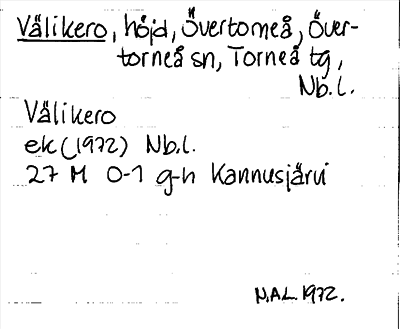 Välikero, höjd, Övertorneå, Över-
torneå sn, Torneå tg,
Nb.l.
Välikero
ek (1972) Nb.l.
27 M 0-1 g-h Kannusjärvi
N.A.L. 1972.